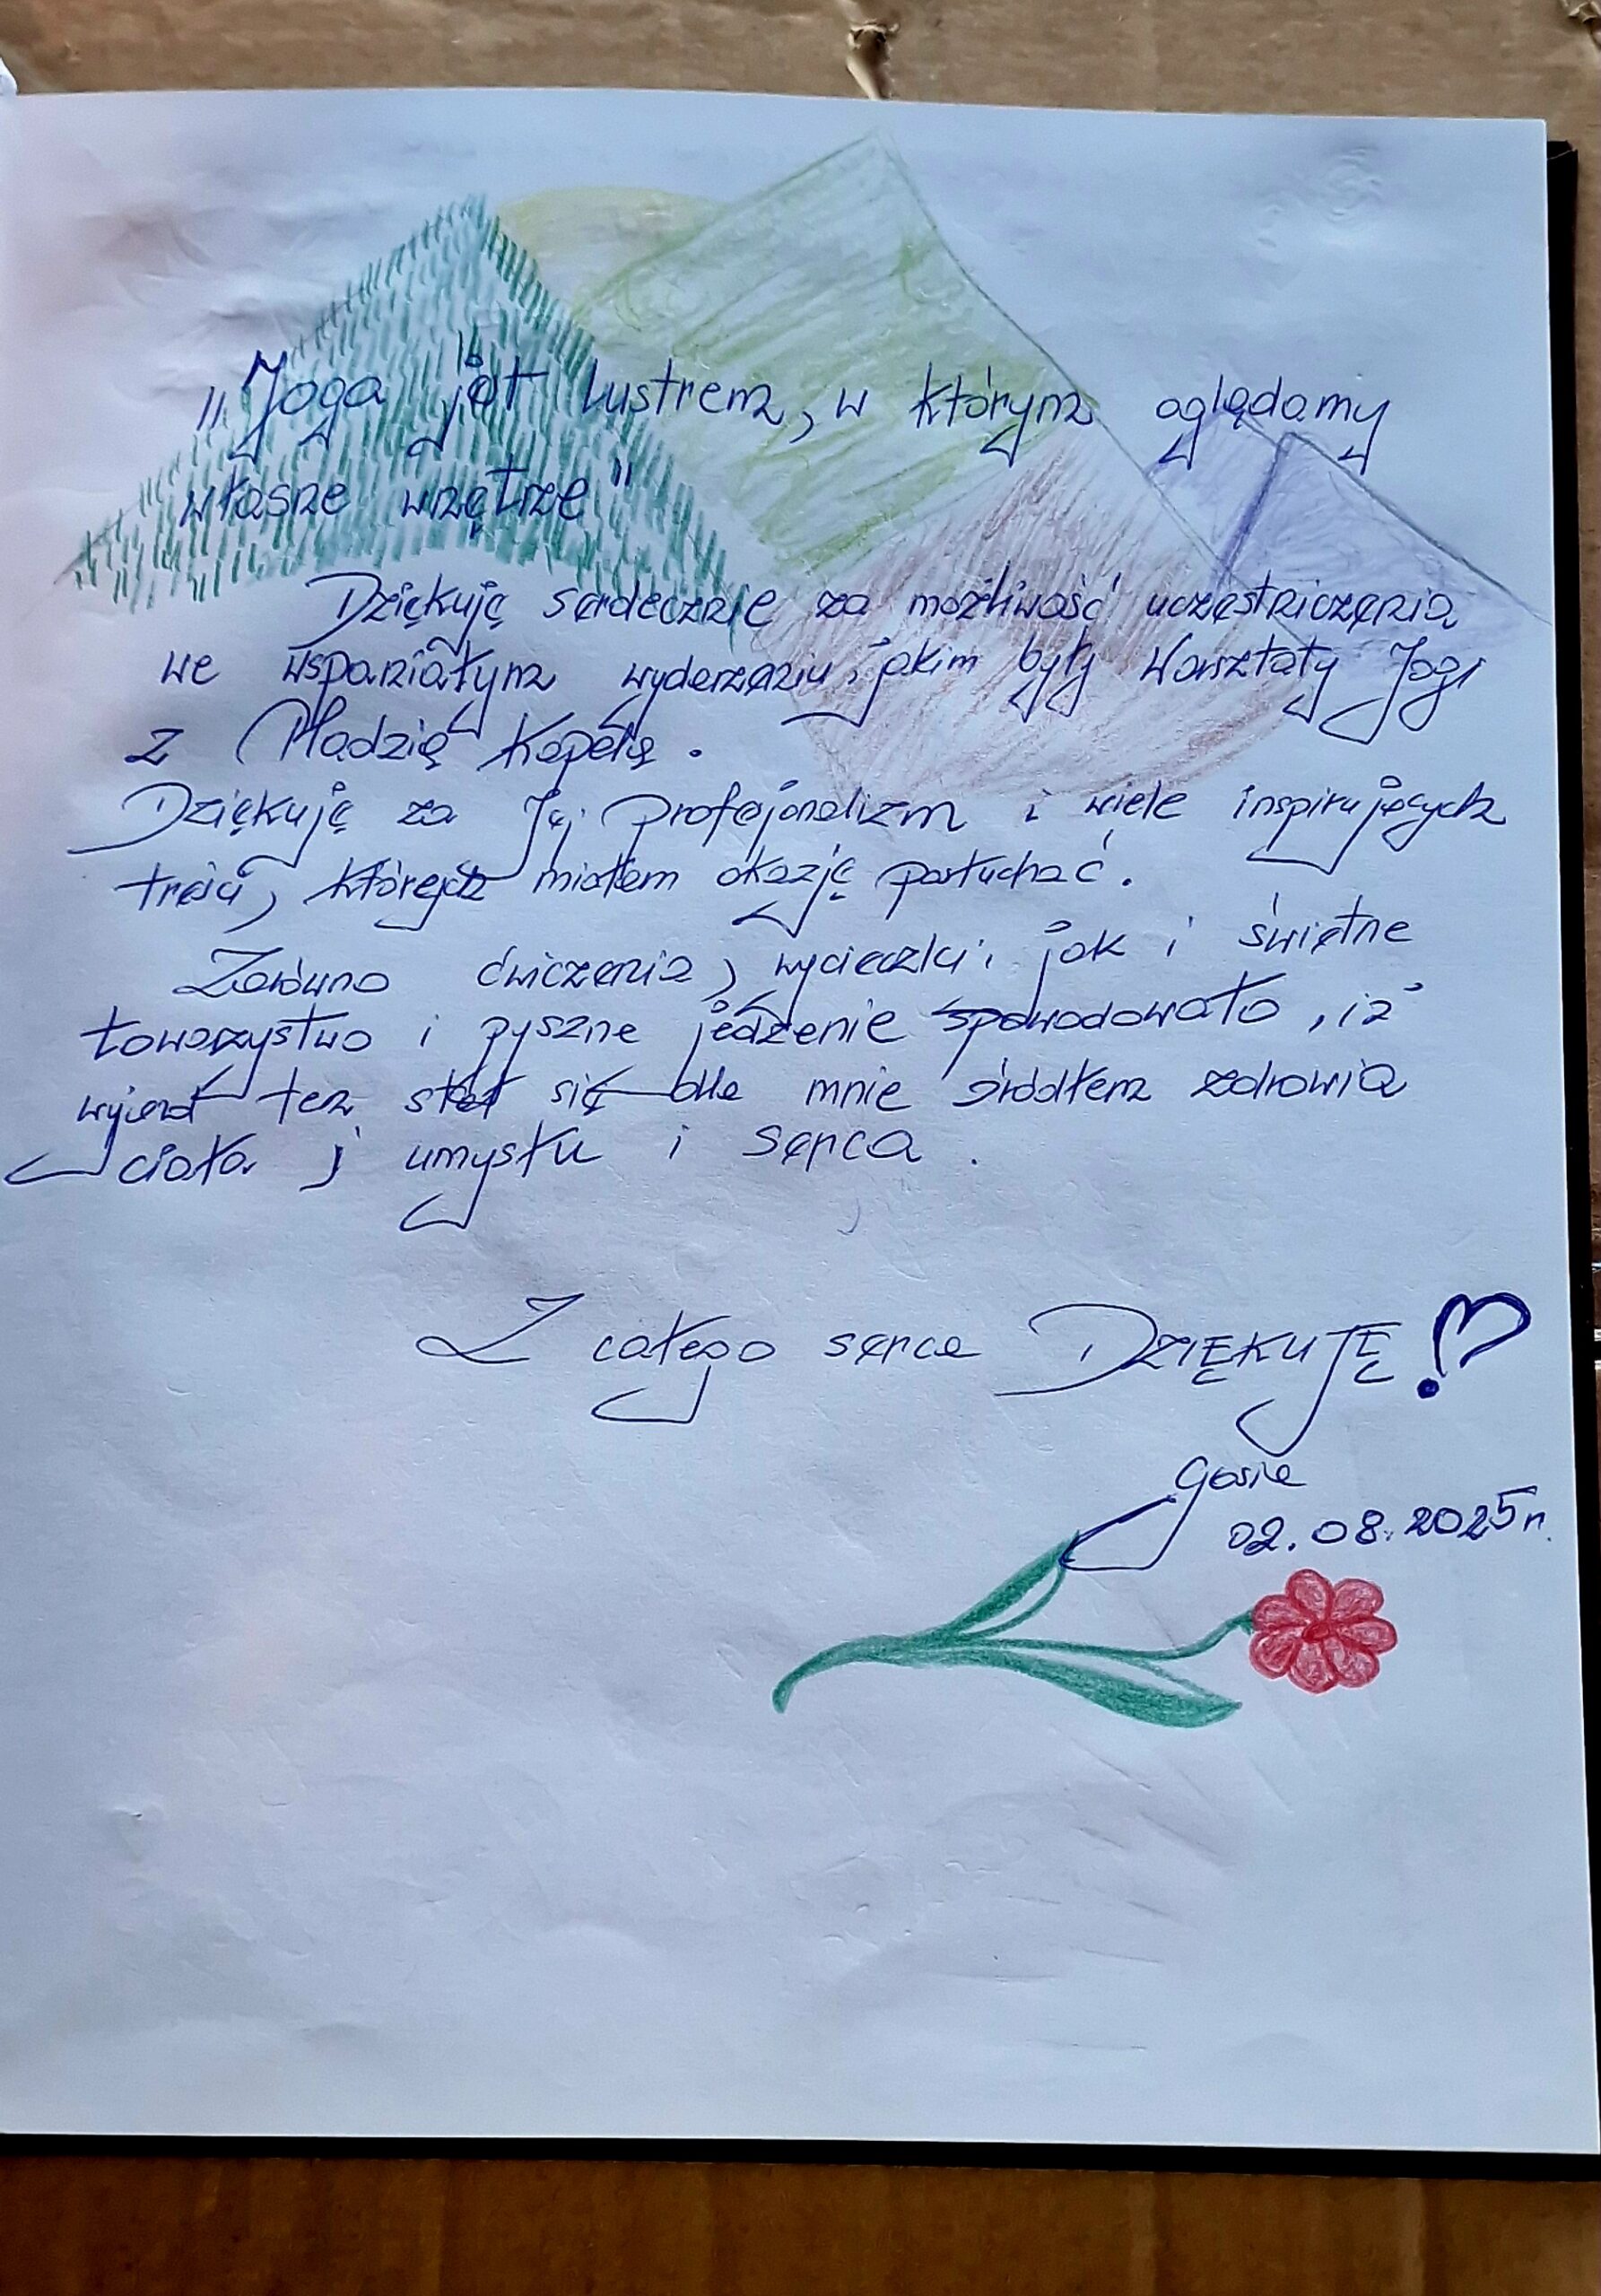 "Joga jest lustrem, w którym oglądamy
własne wnętrze"
Dziękuję serdecznie za możliwość uczęstniczenia
we wspaniałym wydarzeniu, jakim były Warsztaty Jogi
z Madzią Kapelą.
Dziękuję za Jej profesjonalizm i wiele inspirujących
treści, których miałam okazję posłuchać.
Zarówno ćwiczenia, wycieczki, jak i świetne
towarzystwo i pyszne jedzenie spowodowało, iż
wyjazd ten stał się dla mnie źródłem zdrowia
ciała, umysłu i serca.
Z całego serca DZIĘKUJĘ!
Gosia
02.08.2025 r.